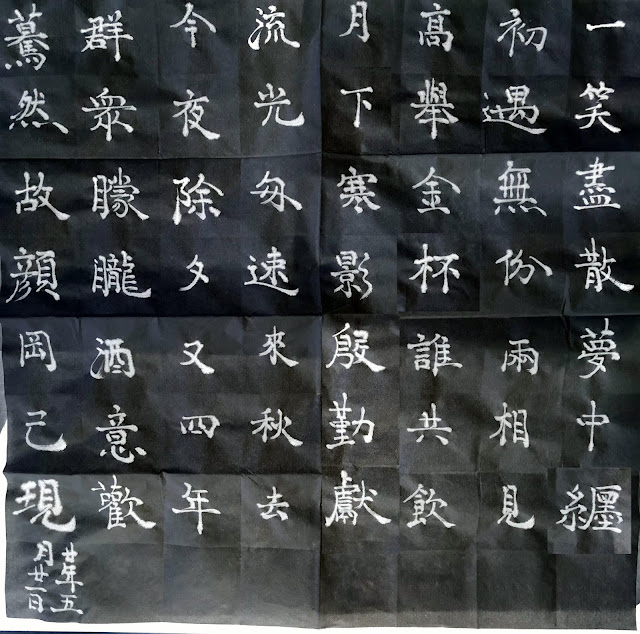 一笑盡散夢中纏
初遇無份兩相見
髙舉金杯誰共飲
月下寒影殷勤獻
流光匆速來秋去
今夜除夕又四年
群衆矇矓酒意歡
驀然故顔岡己現
廿年五
月廿一日